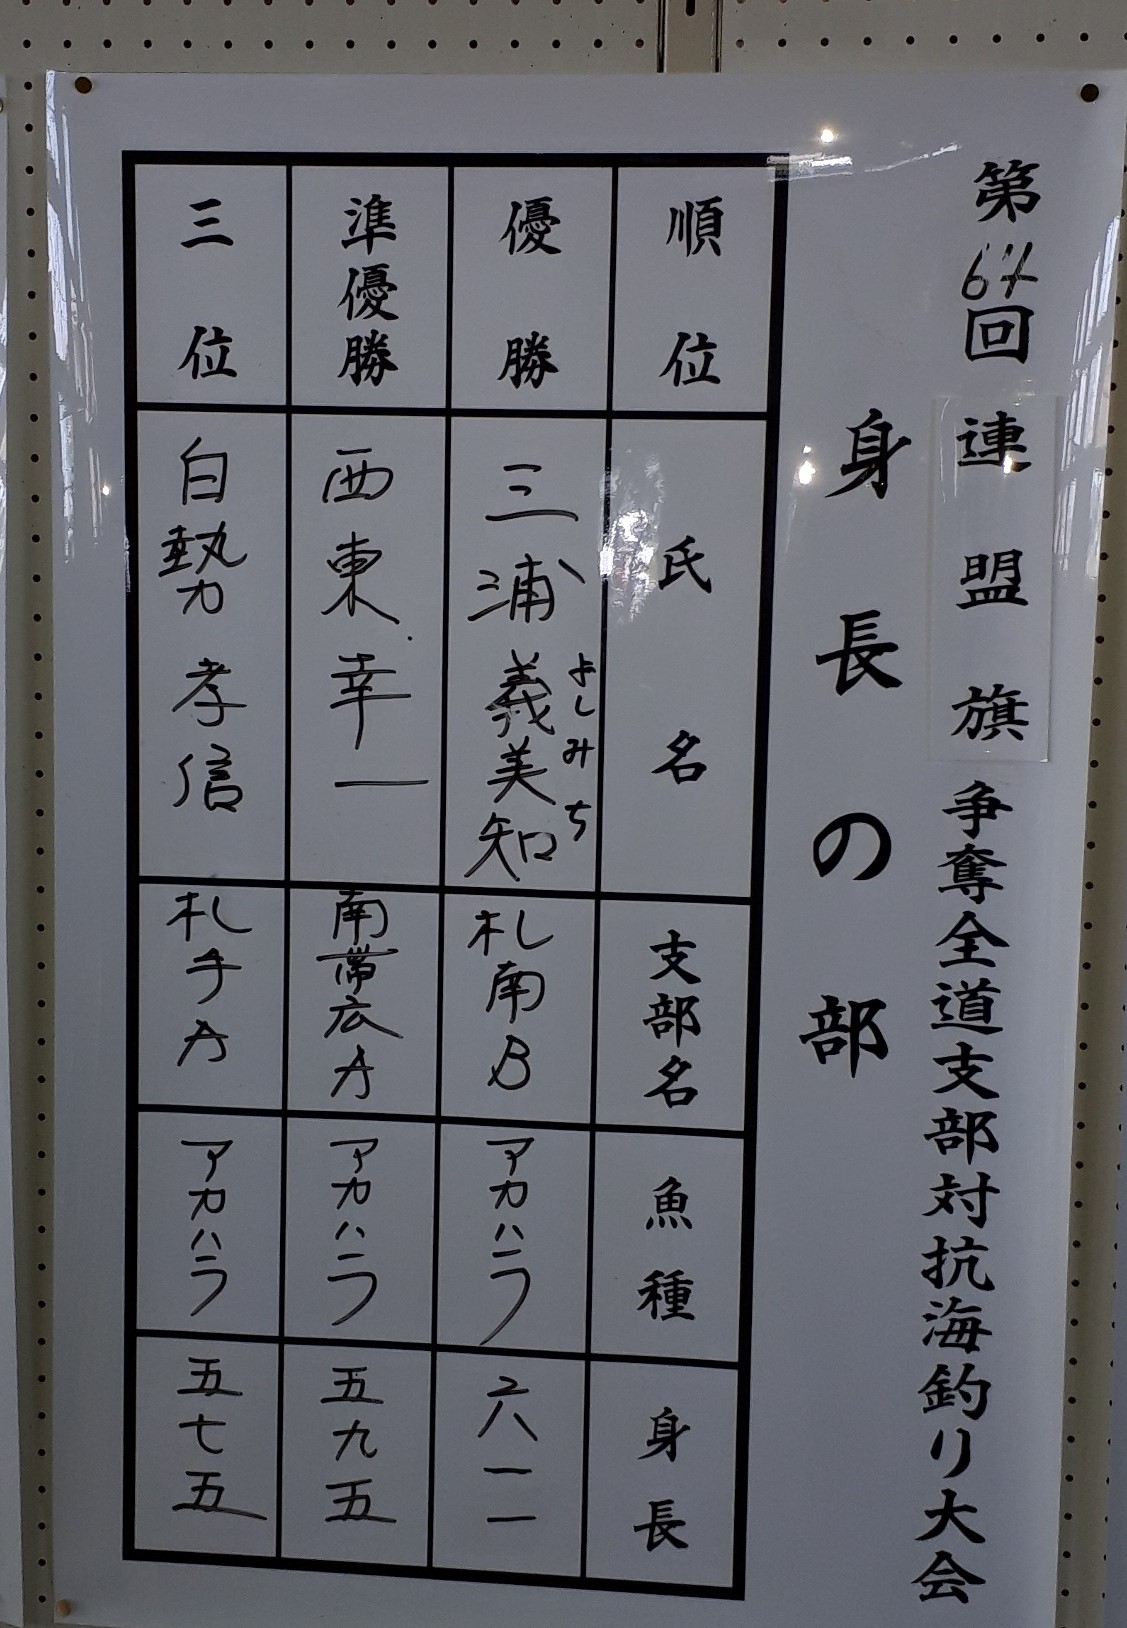 第64回 連盟旗争奪全道支部対抗海釣り大会
身長の部
順位 氏名 支部名 魚種 身長
優勝 三浦義美知 札南B アカハラ 六一一
よしみち
準優勝 西東幸一 南帯広A アカハラ 五九五
三位 白勢孝信 札手A アカハラ 五七五